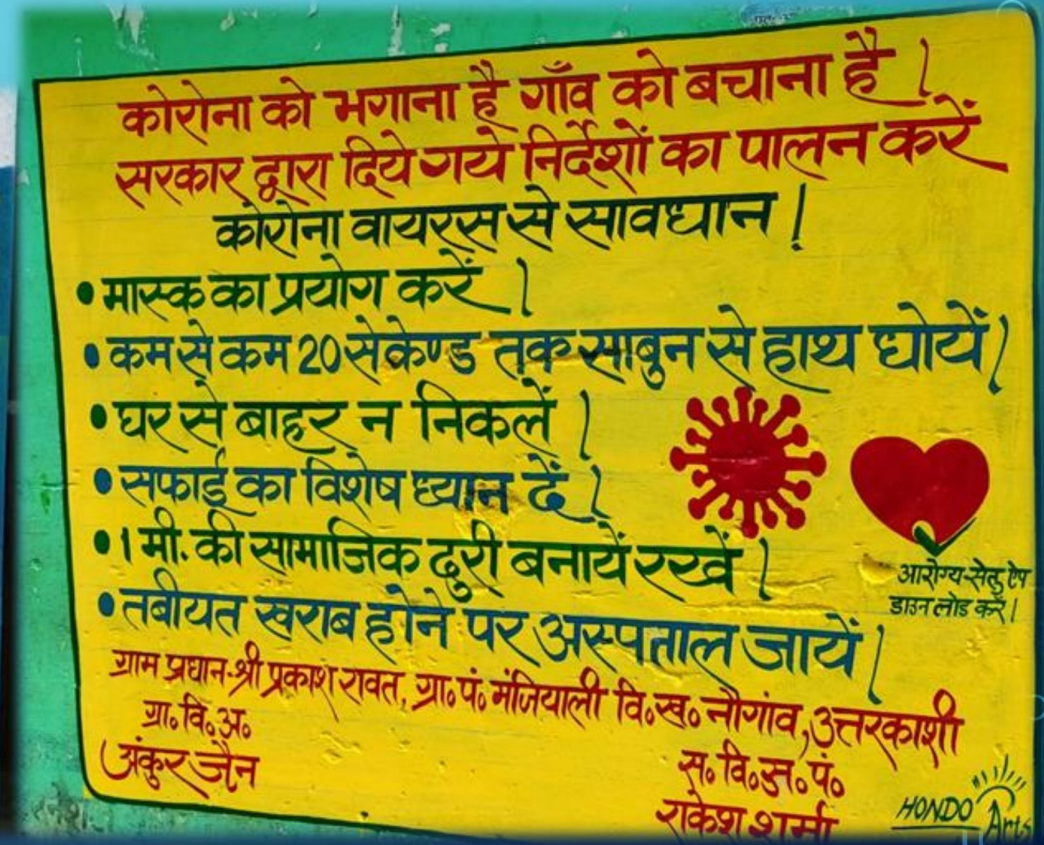 कोरोना को भगाना है गाँव को बचाना है।
सरकार द्वारा दिये गये निर्देशों का पालन करें
कोरोना वायरस से सावधान!
• मास्क का प्रयोग करें।
• कम से कम 20 सेकेण्ड तक साबुन से हाथ धोयें।
• घर से बाहर न निकलें।
• सफाई का विशेष ध्यान दें।
• 1 मी. की सामाजिक दुरी बनायें रखें।
आरोग्य सेतु ऐप
डाउनलोड करें।
• तबीयत खराब होने पर अस्पताल जायें।
ग्राम प्रधान-श्री प्रकाश रावत, ग्रा॰ पं॰ मंजियाली वि॰ख॰ नौगांव, उत्तरकाशी
ग्रा॰ वि॰ अ॰
अंकुर जैन
स॰ वि॰ अ॰ पं॰
राकेश शर्मा
HONDO Arts